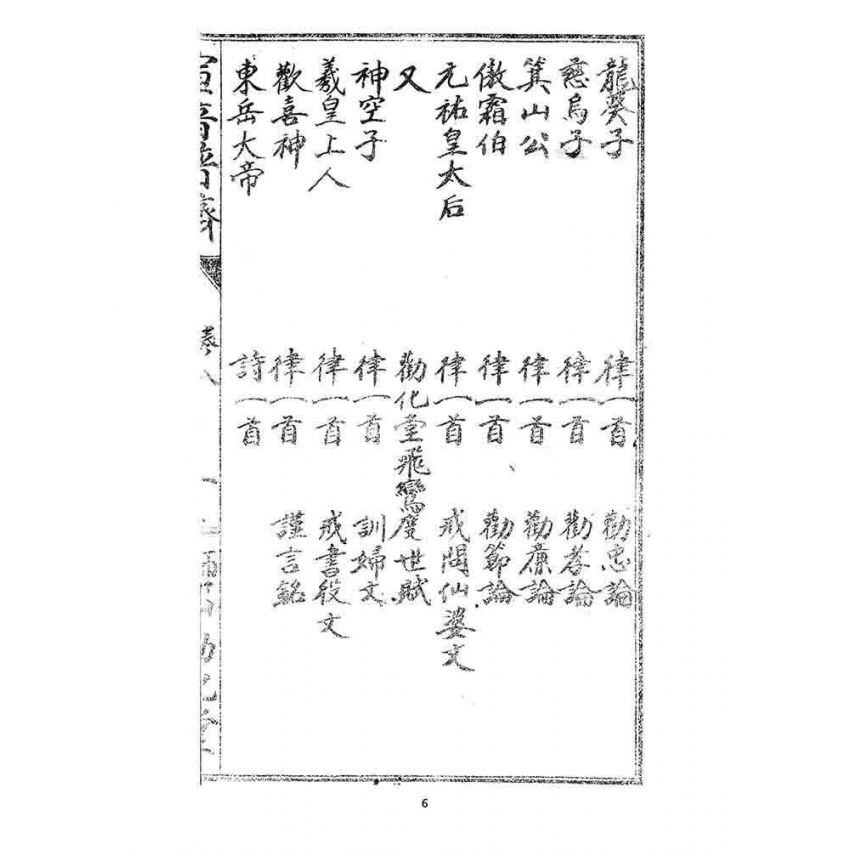 龍葵子 律一首 勸忠論
慈烏子 律一首 勸孝論
箕山公 律一首 勸廉論
傲霜伯 律一首 勸節論
元祐皇太后 律一首 戒闖仙婆文
又 勸化堂飛鸞度世賦
神空子 律一首 訓婦文
羲皇上人 律一首 戒書役文
歡喜神 律一首 謹言銘
東岳大帝 詩一首
卷八
6